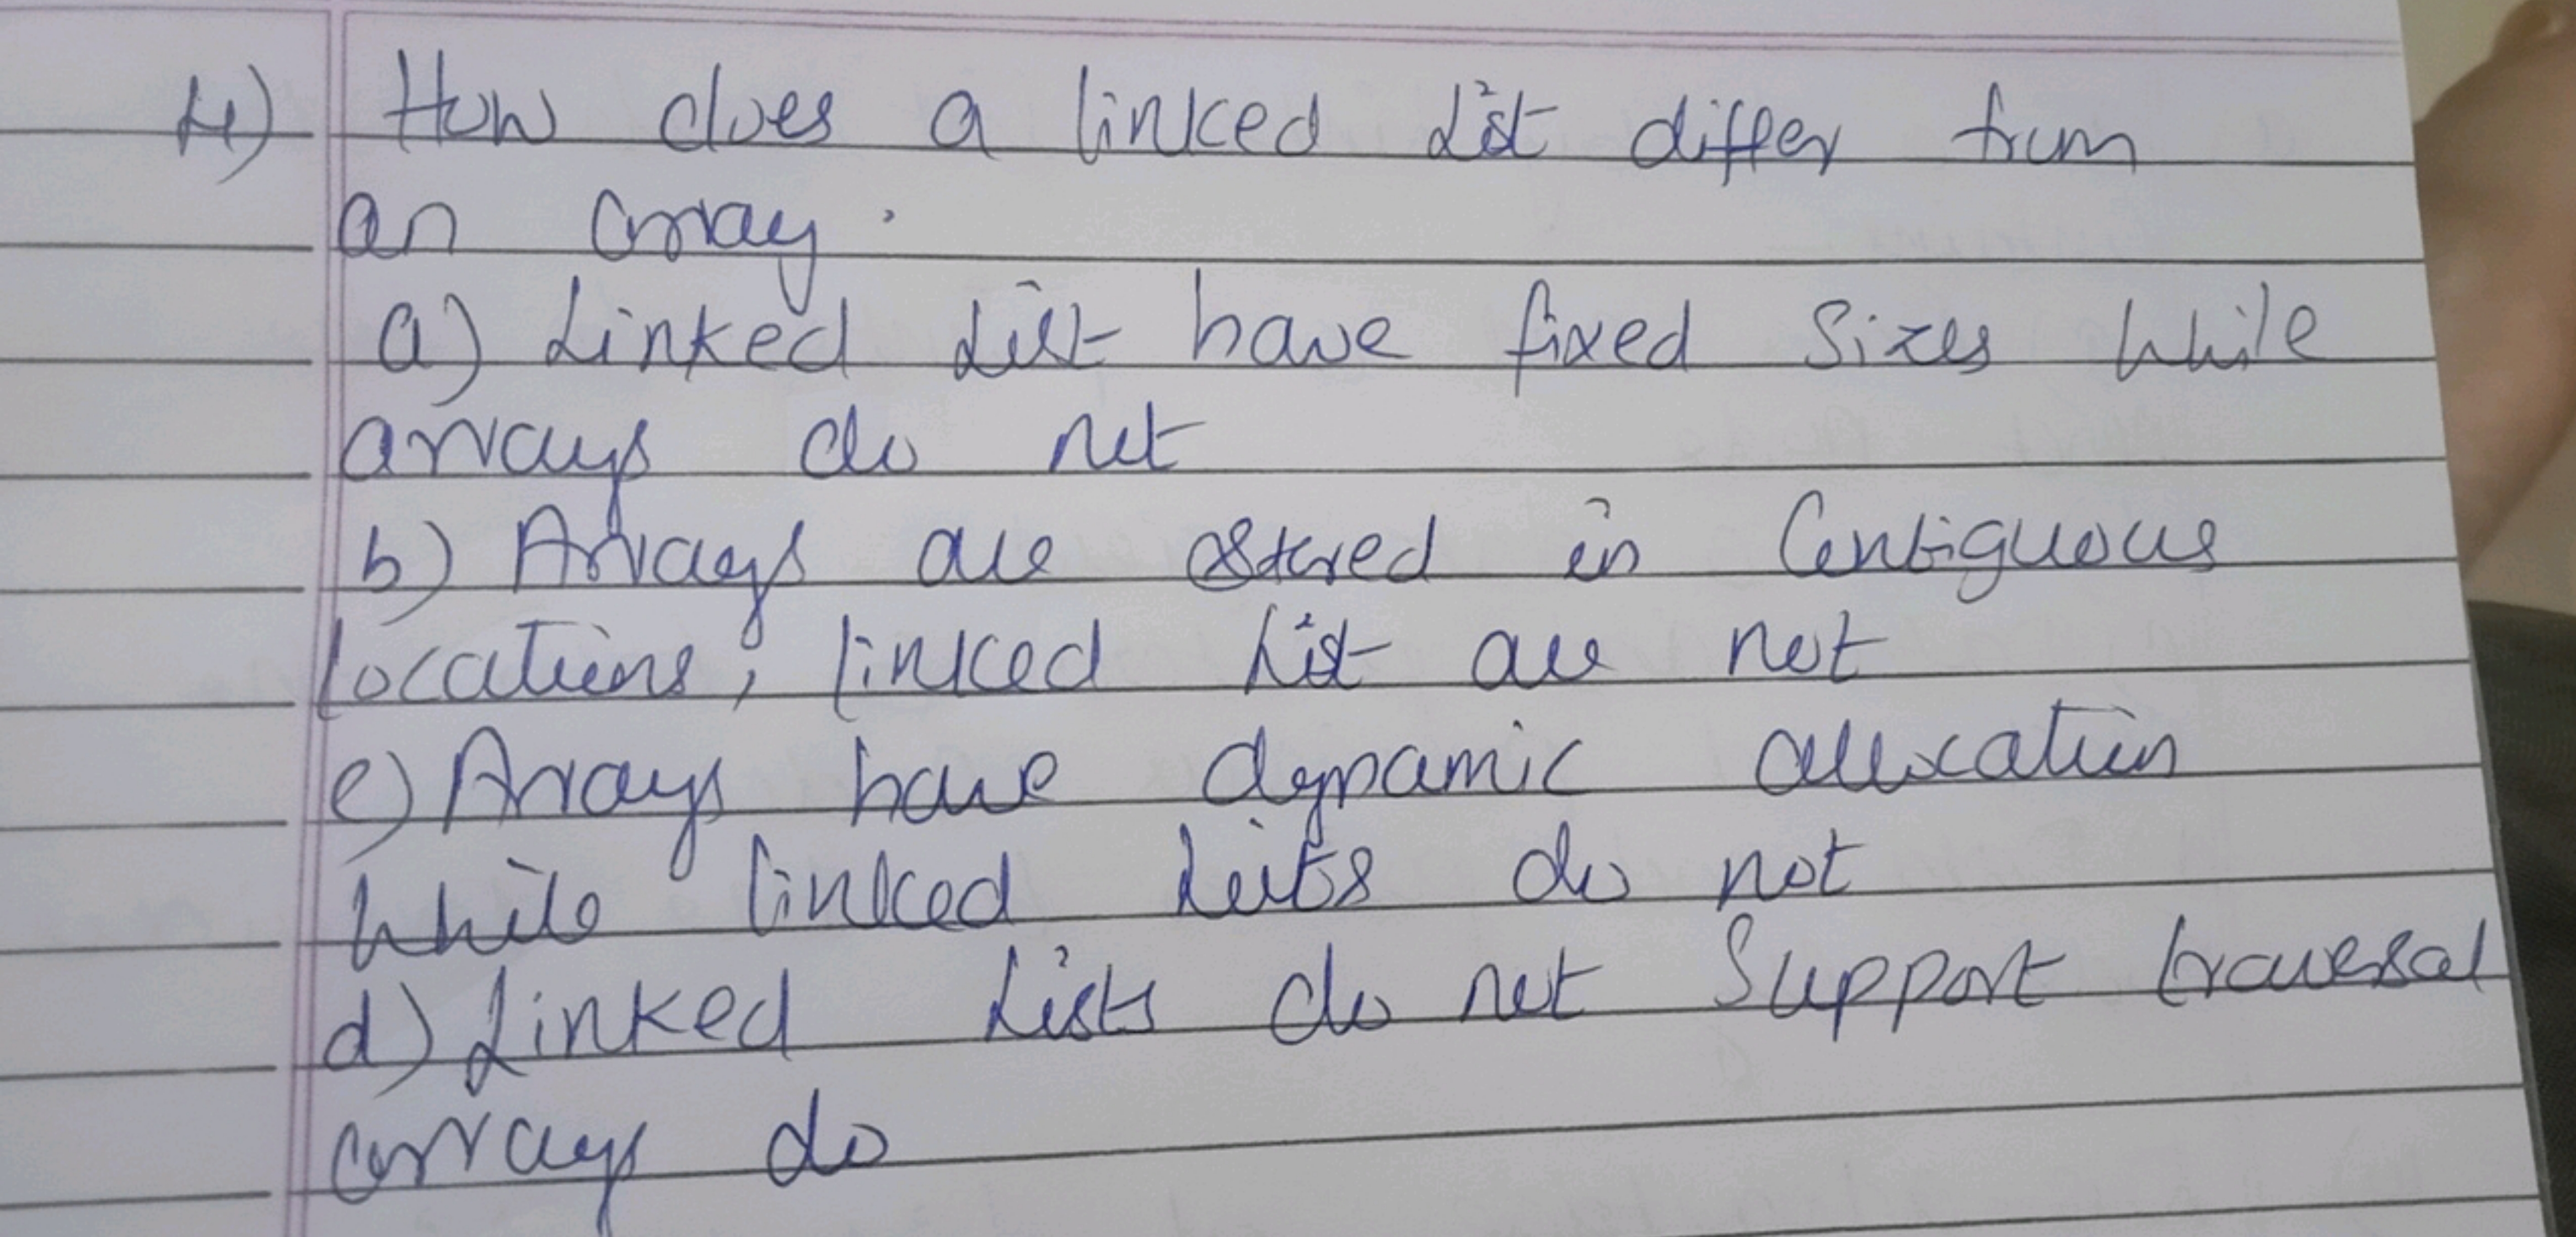 4) How does a linked List differ from
an array.
a) Linked List have fixed sizes while
arrays do not
b) Arrays are stored in Contiguous
locations; linked List are not
c) Arrays have dynamic allocation
while linked Lists do not
d) Linked Lists do not Support traversal
arrays do